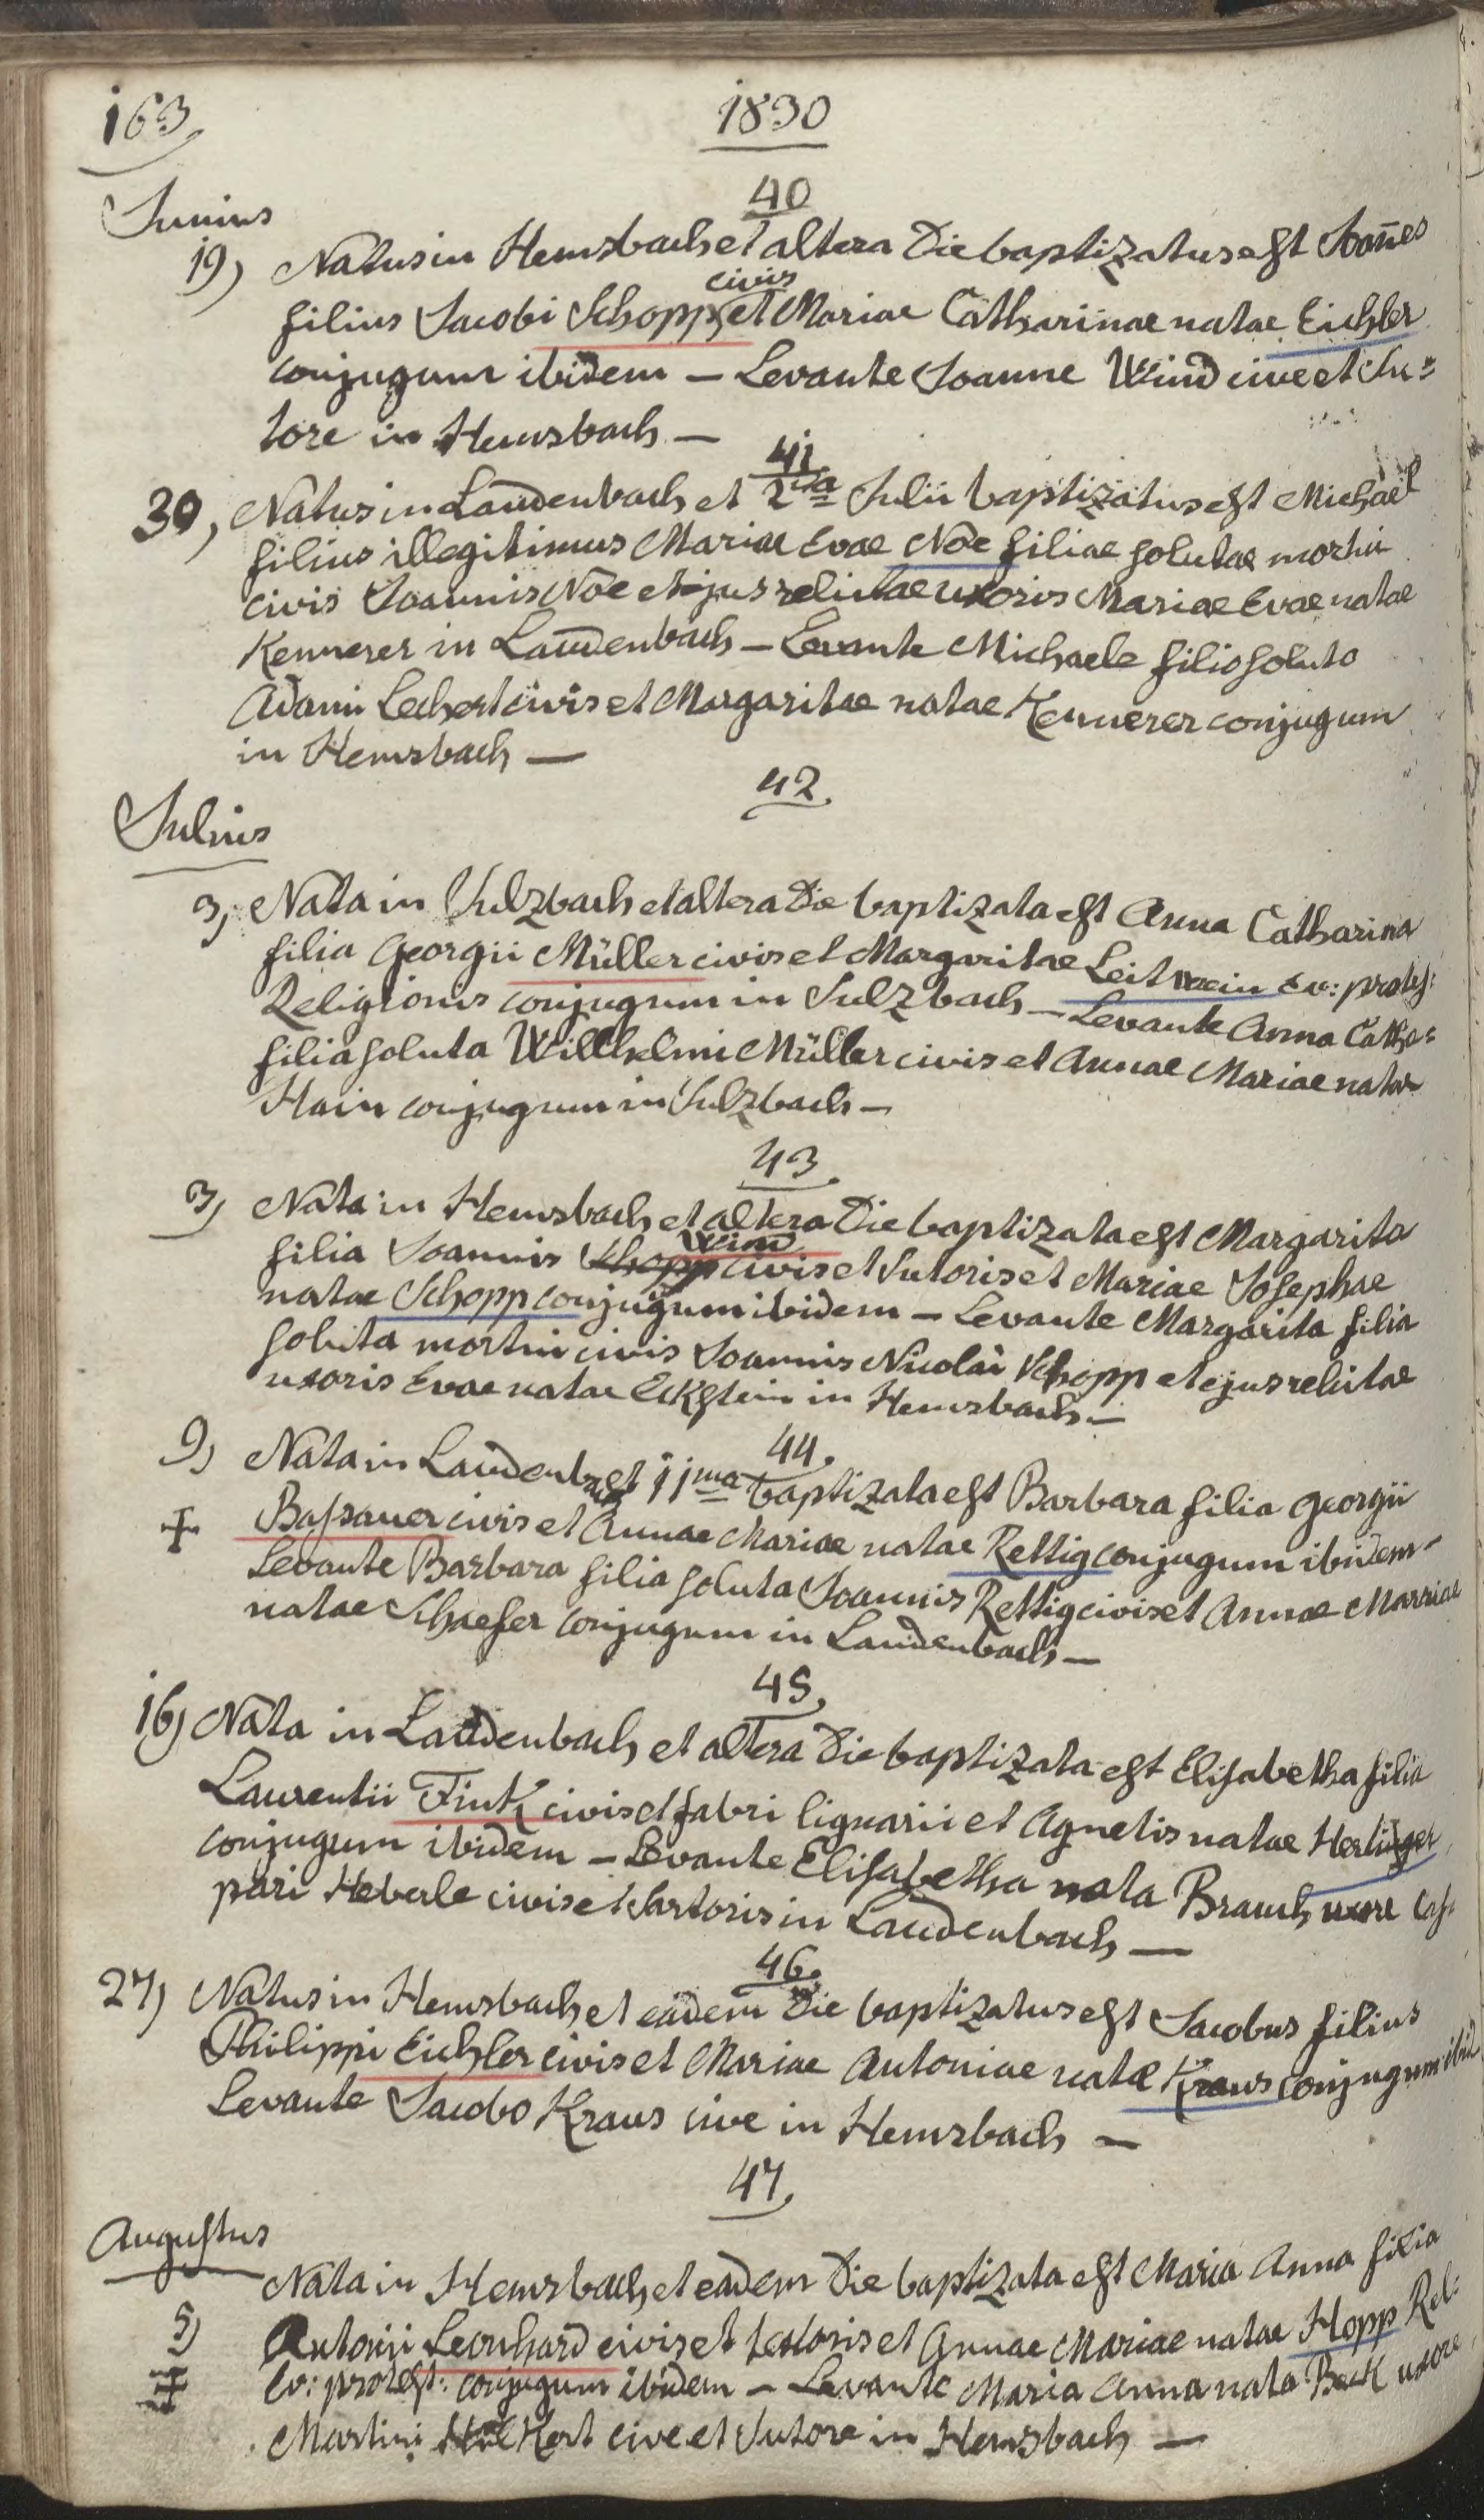 163
1830
Junius
40
19) Natus in Hemsbach et altera Die baptizatus est Joañes
civis
filius Jacobi Schopp et Mariae Catharinae natae Eichler
conjugum ibidem — Levante Joanne Wind cive et Su=
tore in Hemsbach —
41.
30, Natus in Laudenbach et 2da Julii baptizatus est Michael
filius illegitimus Mariae Evae Noe filiae solutae mortui
civis Joannis Noe et ejus relictae uxoris Mariae Evae natae
Kennerer in Laudenbach — Levante Michaele filio soluto
Adami Lechert civis et Margaritae natae Kennerer conjugum
in Hemsbach —
42.
Julius
3, Nata in Sulzbach et altera Die baptizata est Anna Catharina
filia Georgii Müller civis et Margaritae Leitwein Ev: protest:
Religionis conjugum in Sulzbach — Levante Anna Catha=
filia soluta Willhelmi Müller civis et Annae Mariae natae
Hain conjugum in Sulzbach —
43.
3) Nata in Hemsbach et altera Die baptizata est Margarita
Wind
filia Joannis Schopp civis et Sutoris et Mariae Josephae
natae Schopp conjugum ibidem — Levante Margarita filia
soluta mortui civis Joannis Nicolai Schopp et ejus relictae
uxoris Evae natae Eckstein in Hemsbach —
44.
9) Nata in Laudenb et 11ma baptizata est Barbara filia Georgii
Bassauer civis et Annae Mariae natae Rettig conjugum ibidem —
Levante Barbara filia soluta Joannis Rettig civis et Annae Mariae
natae Schaefer conjugum in Laudenbach —
45.
16) Nata in Laudenbach et altera Die baptizata est Elisabetha filia
Laurentii Fink civis et fabri lignarii et Agnetis natae
conjugum ibidem — Levante Elisabetha nata Brauch uxore Cas=
pari Heberle civis et Sartoris in Laudenbach —
46.
27) Natus in Hemsbach et eadem Die baptizatus est Jacobus filius
Philippi Eichler civis et Mariae Antoniae natae Kraus conjugum ibid
Levante Jacobo Kraus cive in Hemsbach —
47.
Augustus
Nata in Hemsbach et eadem Die baptizata est Maria Anna filia
5) Antonii Leonhard civis et textoris et Annae Mariae natae Hopp Rel:
Ev: protest: conjugum ibidem — Levante Maria Anna nata Beck uxore
Martini Kert cive et Sutore in Hemsbach —